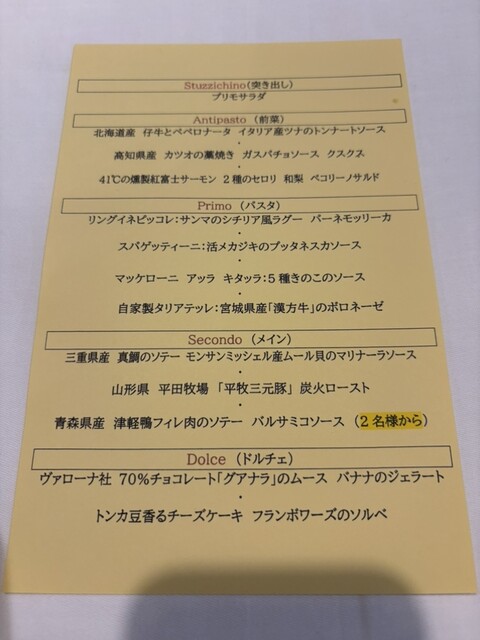 Stuzzichino(突き出し)
プリモサラダ
Antipasto (前菜)
北海道産 仔牛とペペロナータ イタリア産ツナのトンナートソース
・
高知県産 カツオの藁焼き ガスパチョソース クスクス
・
41℃の燻製紅富士サーモン 2種のセロリ 和梨 ペコリーノサルド
Primo (パスタ)
リングイネピッコレ:サンマのシチリア風ラグー パーネモッリーカ
・
スパゲッティーニ:活メカジキのプッタネスカソース
・
マッケローニ アッラ キタッラ:5種きのこのソース
・
自家製タリアテッレ:宮城県産「漢方牛」のボロネーゼ
Secondo (メイン)
三重県産 真鯛のソテー モンサンミッシェル産ムール貝のマリナーラソース
・
山形県 平田牧場 「平牧三元豚」 炭火ロースト
・
青森県産 津軽鴨フィレ肉のソテー バルサミコソース (2名様から)
Dolce (ドルチェ)
ヴァローナ社 70%チョコレート「グアナラ」のムース バナナのジェラート
・
トンカ豆香るチーズケーキ フランボワーズのソルベ